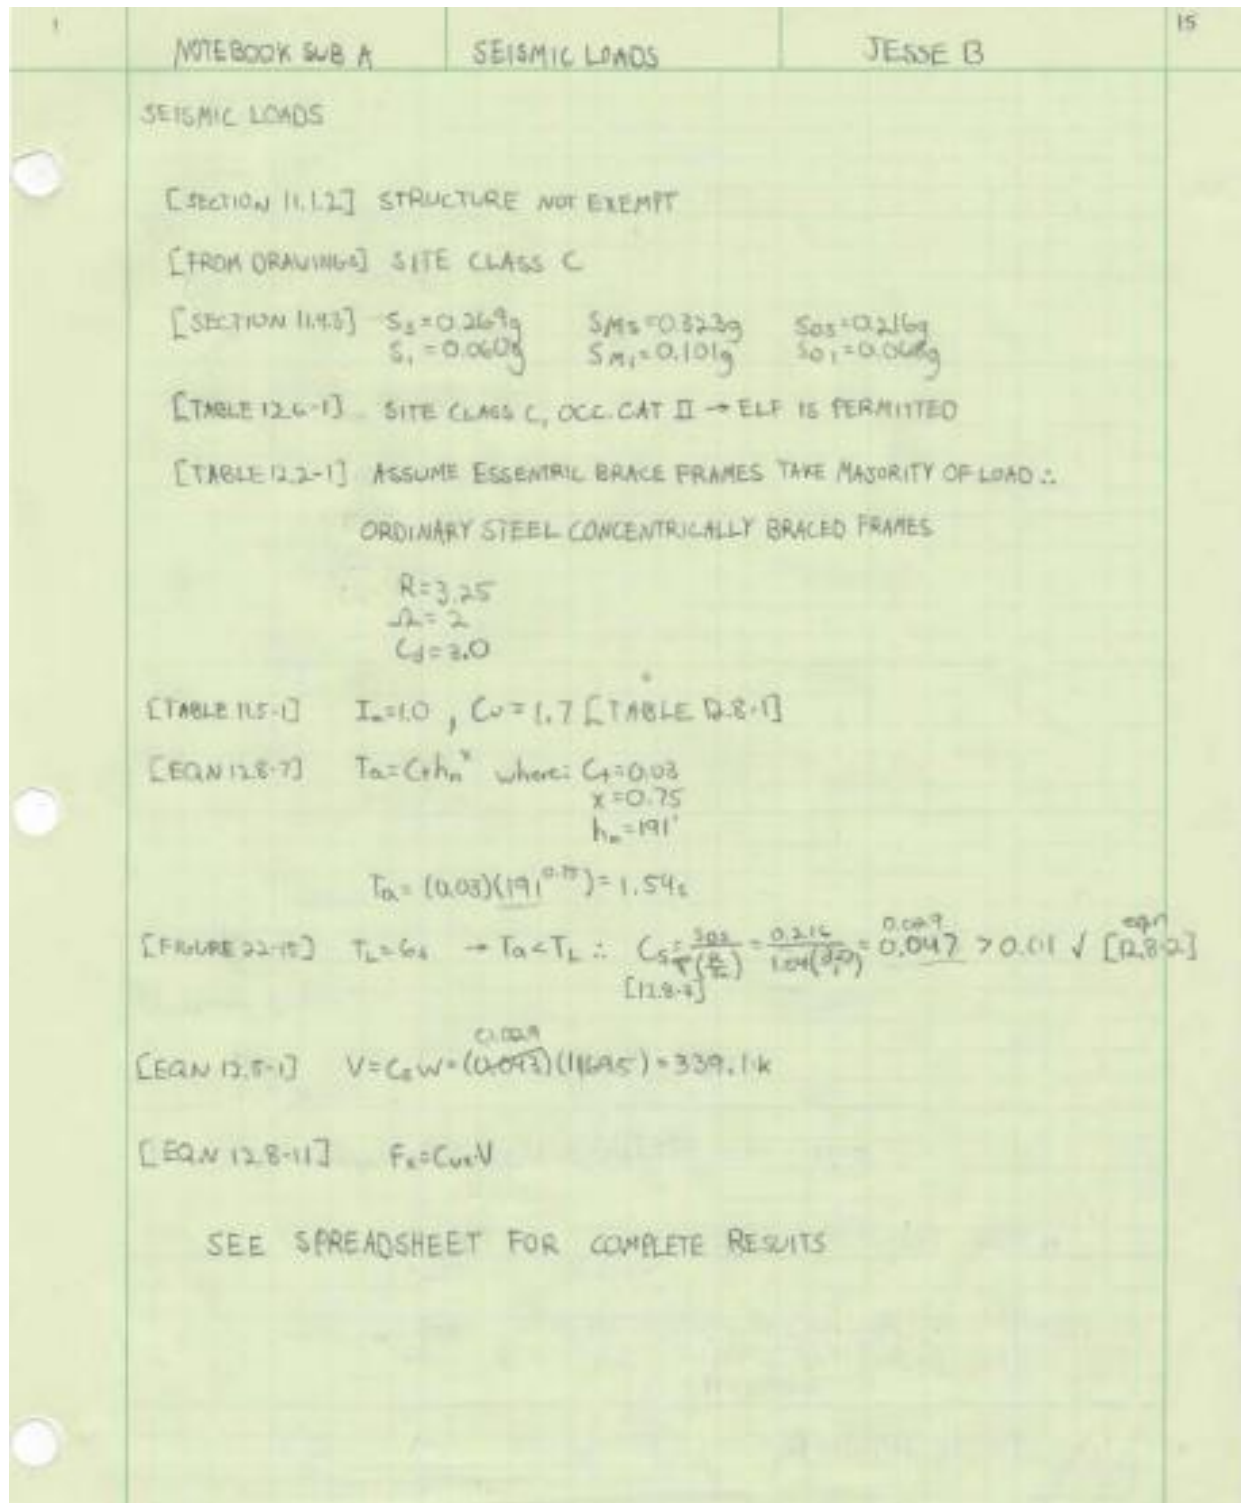 15
NOTEBOOK SUB A SEISMIC LOADS JESSE B
SEISMIC LOADS
[SECTION 11.1.2] STRUCTURE NOT EXEMPT
[FROM DRAWINGS] SITE CLASS C
[SECTION 11.4.3] Ss=0.269g SMS=0.323g SDS=0.216g
S1=0.060g SM1=0.101g SD1=0.068g
[TABLE 12.6-1] SITE CLASS C, OCC. CAT II → ELF IS PERMITTED
[TABLE 12.2-1] ASSUME ESSENTRIC BRACE FRAMES TAKE MAJORITY OF LOAD ∴
ORDINARY STEEL CONCENTRICALLY BRACED FRAMES
R=3.25
Ω=2
Cd=3.0
[TABLE 11.5-1] I=1.0, Cu=1.7 [TABLE 12.8-1]
[EQN 12.8-7] Ta=Cthn^x where: Ct=0.03
x=0.75
hn=191'
Ta=(0.03)(191^0.75)=1.54s
[FIGURE 22-15] TL=6s → Ta<TL ∴ Cs= = 0.216 = 0.029 0.047 >0.01 √ [eqn 12.8-2]
[12.8-3]
[EQN 12.8-1] V=CsW= 0.029 (11695)=339.1k
[EQN 12.8-11] Fx=CvxV
SEE SPREADSHEET FOR COMPLETE RESULTS